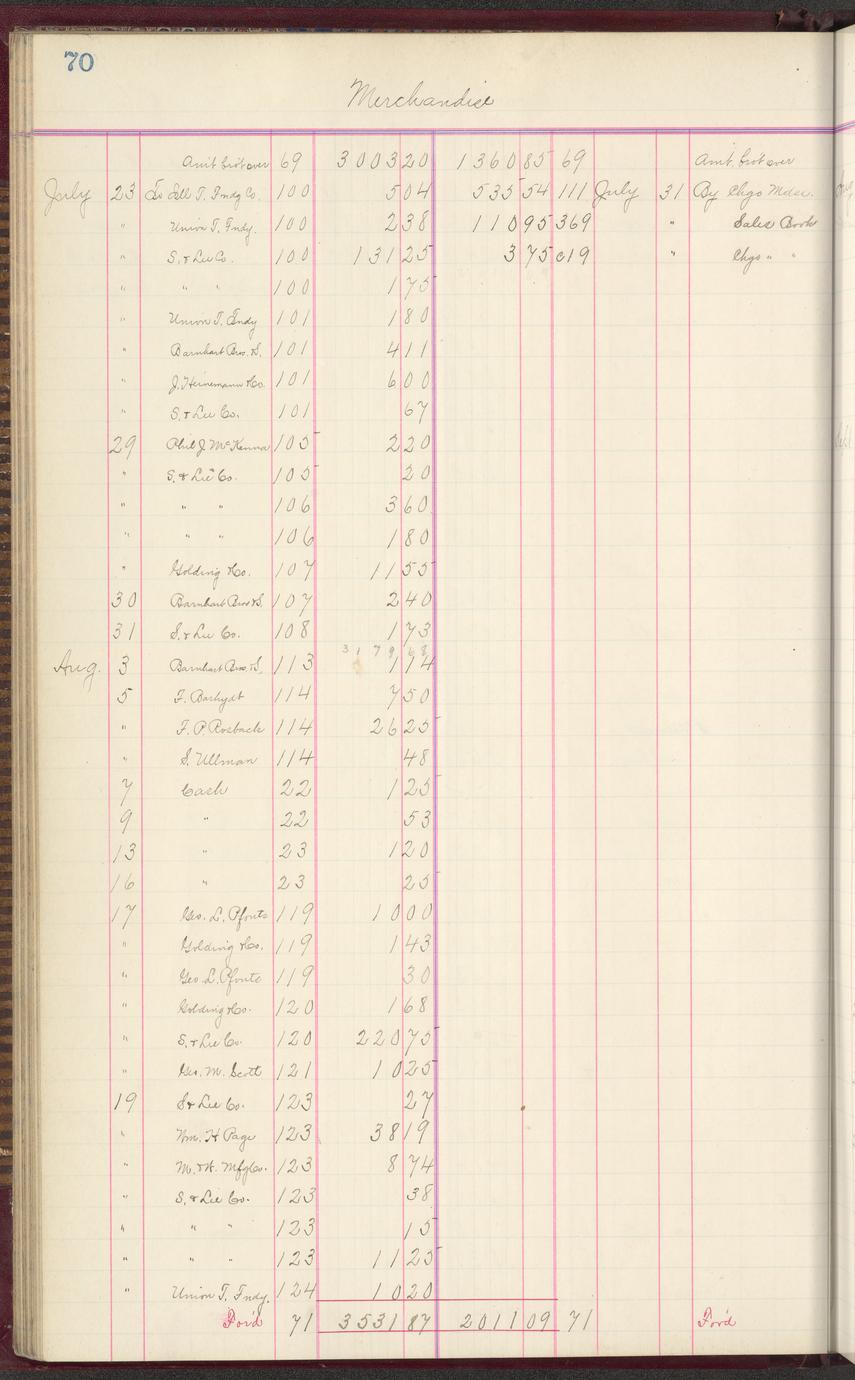 70
Merchandise
Am't bro't over 69 3003 20 1360 85 69 Am't. bro't over
July 23 To Sell T. Fndy Co. 100 5 04 535 54 111 July 31 By Chgo Mdse.
" Union T. Fndy. 100 2 38 110 95 369 " Sales Book
" S. & Lee Co. 100 131 25 3 75 c19 " Chgo " "
" " " 100 1 75
" Union T. Fndy 101 1 80
" Barnhart Bros. & S. 101 4 11
" J. Heinemann & Co. 101 6 00
" S. & Lee Co. 101 67
29 Phil J. McKenna 105 2 20
" S. & Lee Co. 105 20
" " " 106 3 60
" " " 106 1 80
" Golding & Co. 107 11 55
30 Barnhart Bros & S. 107 2 40
31 S. & Lee Co. 108 1 73
3179 68
Aug. 3 Barnhart Bros. & S. 113 1 14
5 F. Barhydt 114 7 50
" F. P. Rosback 114 26 25
" S. Ullman 114 48
7 Cash 22 1 25
9 " 22 53
13 " 23 1 20
16 " 23 25
17 Geo. L. Pfouts 119 10 00
" Golding & Co. 119 1 43
" Geo L. Pfouts 119 30
" Golding & Co. 120 1 68
" S. & Lee Co. 120 220 75
" Geo. M. Scott 121 10 25
19 S & Lee Co. 123 27
" Wm. H Page 123 38 19
" M. & W. Mfg Co. 123 8 74
" S. & Lee Co. 123 38
" " " 123 15
" " " 123 11 25
" Union T. Fndy. 124 10 20
For'd 71 3531 87 2011 09 71 For'd